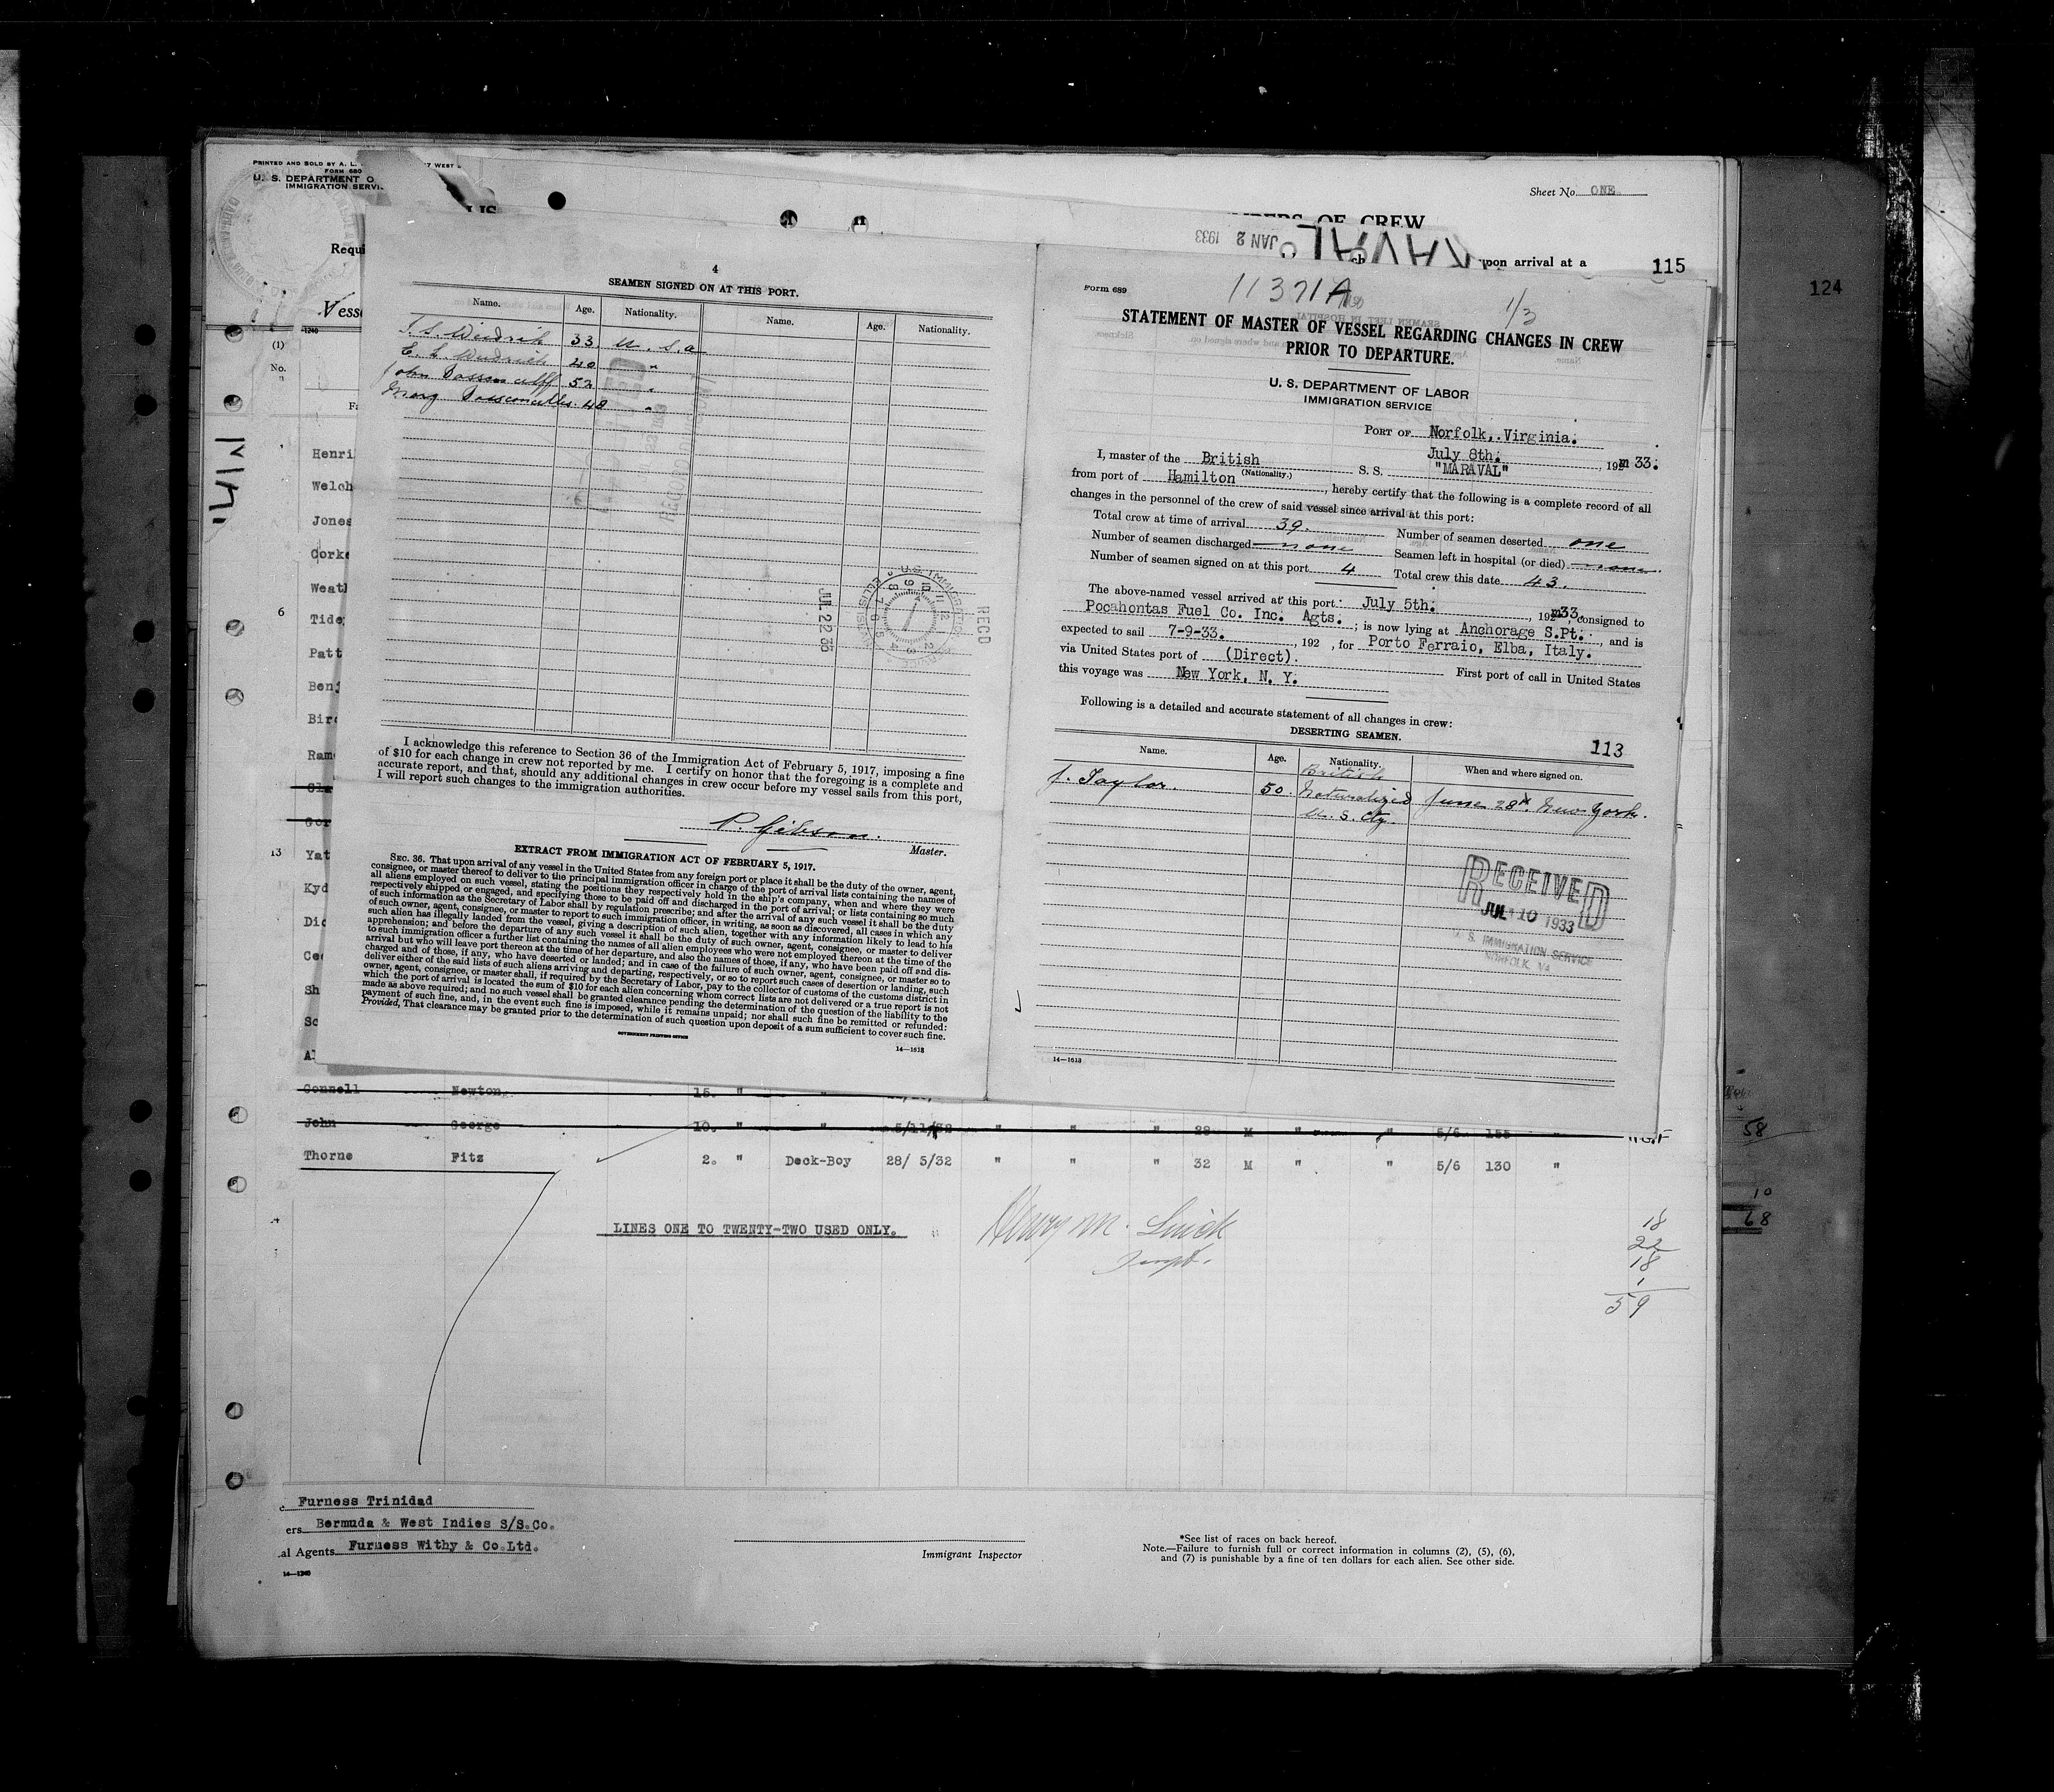 PRINTED AND SOLD BY A. L.
FORM 680
U. S. DEPARTMENT O
IMMIGRATION SERVI
Sheet No. ONE
OF CREW
JAN 2 1933
upon arrival at a
115
124
Requi
Vess
(1)
No.
Henri
Welch
Jones
Corke
Weath
6
Tide
Patt
Benj
Bird
Rams
13
Yat
Kyd
Dic
Cec
Sh
Sc
4
SEAMEN SIGNED ON AT THIS PORT.
Name. Age. Nationality. Name. Age. Nationality.
33 U. S. a
40 "
John 52 "
48 "
JUL 22 33
RECD
I acknowledge this reference to Section 36 of the Immigration Act of February 5, 1917, imposing a fine
of $10 for each change in crew not reported by me. I certify on honor that the foregoing is a complete and
accurate report, and that, should any additional changes in crew occur before my vessel sails from this port,
I will report such changes to the immigration authorities.
P. Gibson.
Master.
EXTRACT FROM IMMIGRATION ACT OF FEBRUARY 5, 1917.
SEC. 36. That upon arrival of any vessel in the United States from any foreign port or place it shall be the duty of the owner, agent,
consignee, or master thereof to deliver to the principal immigration officer in charge of the port of arrival lists containing the names of
all aliens employed on such vessel, stating the positions they respectively hold in the ship's company, when and where they were
respectively shipped or engaged, and specifying those to be paid off and discharged in the port of arrival; or lists containing so much
of such information as the Secretary of Labor shall by regulation prescribe; and after the arrival of any such vessel it shall be the duty
of such owner, agent, consignee, or master to report to such immigration officer, in writing, as soon as discovered, all cases in which any
such alien has illegally landed from the vessel, giving a description of such alien, together with any information likely to lead to his
apprehension; and before the departure of any such vessel it shall be the duty of such owner, agent, consignee, or master to deliver
to such immigration officer a further list containing the names of all alien employees who were not employed thereon at the time of the
arrival but who will leave port thereon at the time of her departure, and also the names of those, if any, who have been paid off and dis-
charged and of those, if any, who have deserted or landed; and in case of the failure of such owner, agent, consignee, or master so to
deliver either of the said lists of such aliens arriving and departing, respectively, or so to report such cases of desertion or landing, such
owner, agent, consignee, or master shall, if required by the Secretary of Labor, pay to the collector of customs of the customs district in
which the port of arrival is located the sum of $10 for each alien concerning whom correct lists are not delivered or a true report is not
made as above required; and no such vessel shall be granted clearance pending the determination of the question of the liability to the
payment of such fine, and, in the event such fine is imposed, while it remains unpaid; nor shall such fine be remitted or refunded:
Provided, That clearance may be granted prior to the determination of such question upon deposit of a sum sufficient to cover such fine.
GOVERNMENT PRINTING OFFICE
14—1613
Form 689
11371A
1/3
STATEMENT OF MASTER OF VESSEL REGARDING CHANGES IN CREW
PRIOR TO DEPARTURE.
U. S. DEPARTMENT OF LABOR
IMMIGRATION SERVICE
PORT OF Norfolk, Virginia.
July 8th. , 19 33.
I, master of the British S. S. "MARAVAL"
(Nationality.)
from port of Hamilton , hereby certify that the following is a complete record of all
changes in the personnel of the crew of said vessel since arrival at this port:
Total crew at time of arrival 39. Number of seamen deserted one
Number of seamen discharged none Seamen left in hospital (or died) none.
Number of seamen signed on at this port 4 Total crew this date 43.
The above-named vessel arrived at this port July 5th. , 192 33, consigned to
Pocahontas Fuel Co. Inc. Agts. ; is now lying at Anchorage S.Pt. , and is
expected to sail 7-9-33. , 192 , for Porto Ferraio, Elba, Italy.
via United States port of (Direct). First port of call in United States
this voyage was New York, N. Y.
Following is a detailed and accurate statement of all changes in crew:
DESERTING SEAMEN.
113
Name. Age. Nationality. When and where signed on.
British
J. Taylor. 50. Naturalized June 28th New York.
U. S. Cty.
RECEIVED
JUL 10 1933
U. S. IMMIGRATION SERVICE
NORFOLK, VA.
14—1613
Connell Newton 15. "
John George 10. " " 5/11/32 " " " 28 M " " 5/6 155 "
Thorne Fitz 2. " Deck-Boy 28/ 5/32 " " " 32 M " " 5/6 130 "
58
10
68
LINES ONE TO TWENTY-TWO USED ONLY.
Henry M.
Inspt.
18
22
18
1
59
Furness Trinidad
ers Bermuda & West Indies S/S.Co.
al Agents Furness Withy & Co.Ltd.
14—1240
Immigrant Inspector
*See list of races on back hereof.
Note.—Failure to furnish full or correct information in columns (2), (5), (6),
and (7) is punishable by a fine of ten dollars for each alien. See other side.